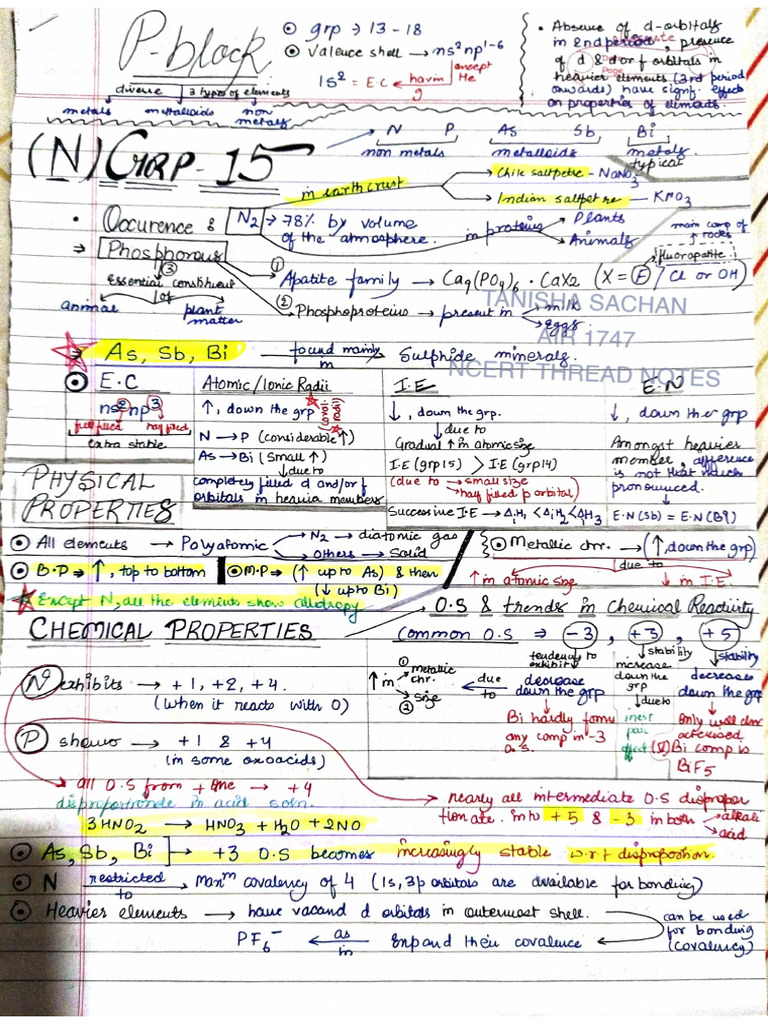 P-block
⊙ grp → 13 - 18
⊙ Valence shell → ns²np¹⁻⁶
1s² = E.C ← having He
except
• Absence of d-orbitals
in 2nd period, presence
of d & d or f orbitals in
heavier elements (3rd period
onwards) have signf. effects
on properties of elements.
diverse 3 types of elements
metals metalloids non metals
(N) GRP-15
→ N P As Sb Bi
non metals metalloids metals
typical
in earth crust
Chile saltpetre - NaNO3
Indian saltpetre - KNO3
• Occurence : N2 → 78% by volume
of the atmosphere.
in proteins Plants
Animals
main comp of rocks
fluorapatite
⇒ Phosphorous
① Apatite family → Ca9(PO4)6 · CaX2 (X = F / Cl or OH)
③
Essential constituent
of
animal plant matter
② Phosphoproteins → present in → milk
→ eggs
TANISHA SACHAN
AIR 1747
NCERT THREAD NOTES
As, Sb, Bi found mainly in Sulphide minerals.
⊙ E.C
ns²np³
full filled half filled
extra stable
Atomic/Ionic Radii
↑, down the grp
N → P (considerable ↑)
As → Bi (small ↑)
↓ due to
completely filled d and/or f
orbitals in heavier members
I.E
↓, down the grp.
↓ due to
Gradual ↑ in atomic size
I.E (grp 15) > I.E (grp 14)
(due to → small size
→ half filled p orbital)
Successive I.E → ΔiH1 < ΔiH2 < ΔiH3
E.N
↓, down the grp
Amongst heavier
member, difference
is not that much
pronounced.
↓
E.N(Sb) = E.N(Bi)
PHYSICAL
PROPERTIES
⊙ All elements → Polyatomic
N2 → diatomic gas
others → solid
⊙ Metallic chr. → (↑, down the grp)
↓ due to
↑ in atomic size ↓ in I.E
⊙ B.P → ↑, top to bottom
⊙ M.P → (↑ upto As) & then
(↓ upto Bi)
Except N, all the elements show allotropy
CHEMICAL PROPERTIES
O.S & trends in Chemical Reactivity
Common O.S ⇒ -3, +3, +5
tendency to exhibit
decrease
down the grp
due to
↑ in ① metallic chr.
② size
Bi hardly forms
any comp in -3
o.s.
stability
increase
down the
grp
↓ due to
inert
pair
effect
stability
decreases
down the grp
Only well char
acterised
(V) Bi comp is
BiF5
N exhibits → +1, +2, +4.
(when it reacts with O)
P shows → +1 & +4
(in some oxoacids)
→ all O.S from + one → +4
disproportionate in acid soln.
3HNO2 → HNO3 + H2O + 2NO
→ nearly all intermediate O.S dispropor
tionate into +5 & -3 in both → alkali
→ acid
⊙ As, Sb, Bi → +3 O.S becomes increasingly stable w.r.t disproportion.
⊙ N restricted to → maxm covalency of 4 (1s, 3p orbitals are available for bonding)
⊙ Heavier elements → have vacand d orbitals in outermost shell.
can be used
for bonding
(covalency)
PF6⁻ ← as in Expand their covalence ←